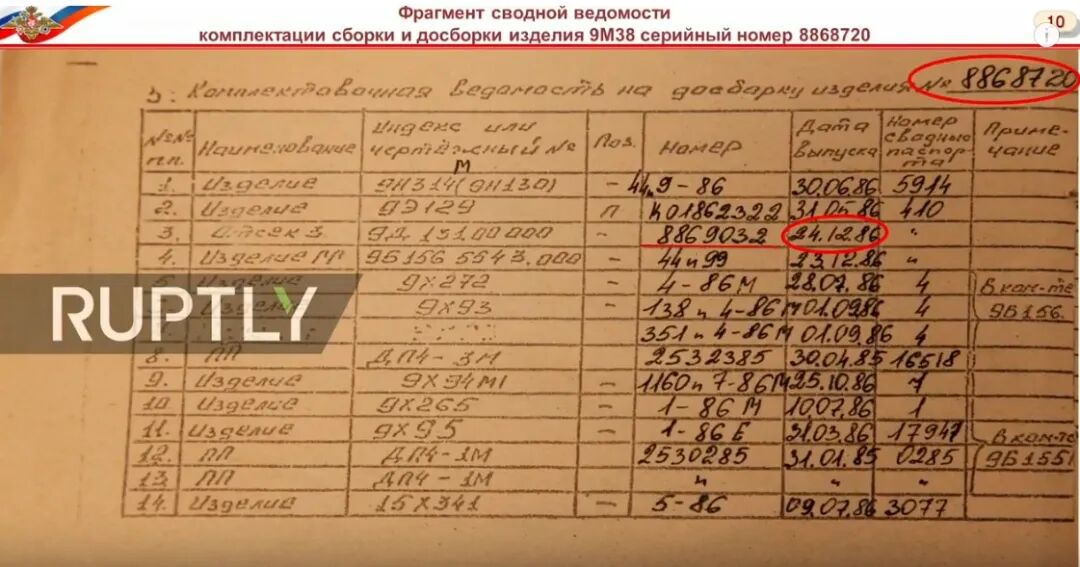 Фрагмент сводной ведомости
комплектации сборки и досборки изделия 9М38 серийный номер 8868720
10
5. Комплектовочная ведомость на досборку изделия № 8868720
№№ п.п. Наименование Индекс или чертёжный № Поз. Номер Дата выпуска Номер сводный паспорта Примечание
М
1. Изделие 9Н314(9Н130) – 44.9-86 30.06.86 5914
2. Изделие 9Э129 П К01862322 31.05.86 410
3. Отсек 3 9Д 13100000 – 8869032 24.12.86 "
4. Изделие 9Б156 554 3.000 – 44 п 99 23.12.86 "
9Х272 – 4-86М 28.07.86 4 В ком-те
RUPTLY
Изделие 9Х93 138 п 4-86М 01.09.86 4 9Б156.
351 п 4-86М 01.09.86 4
8. ПП ДП4-3М 2532385 30.04.85 16518
9. Изделие 9Х94М1 – 1160 п 7-86М 25.10.86 7
10 Изделие 9Х265 – 1-86 М 10.07.86 1
11. Изделие 9Х95 – 1-86 Е 31.03.86 17947 В ком-те
12. ПП ДП4-1М 2530285 31.01.85 0285 9Б1551
13. ПП ДП4-1М " " "
14. Изделие 15Х341 – 5-86 09.07.86 3077